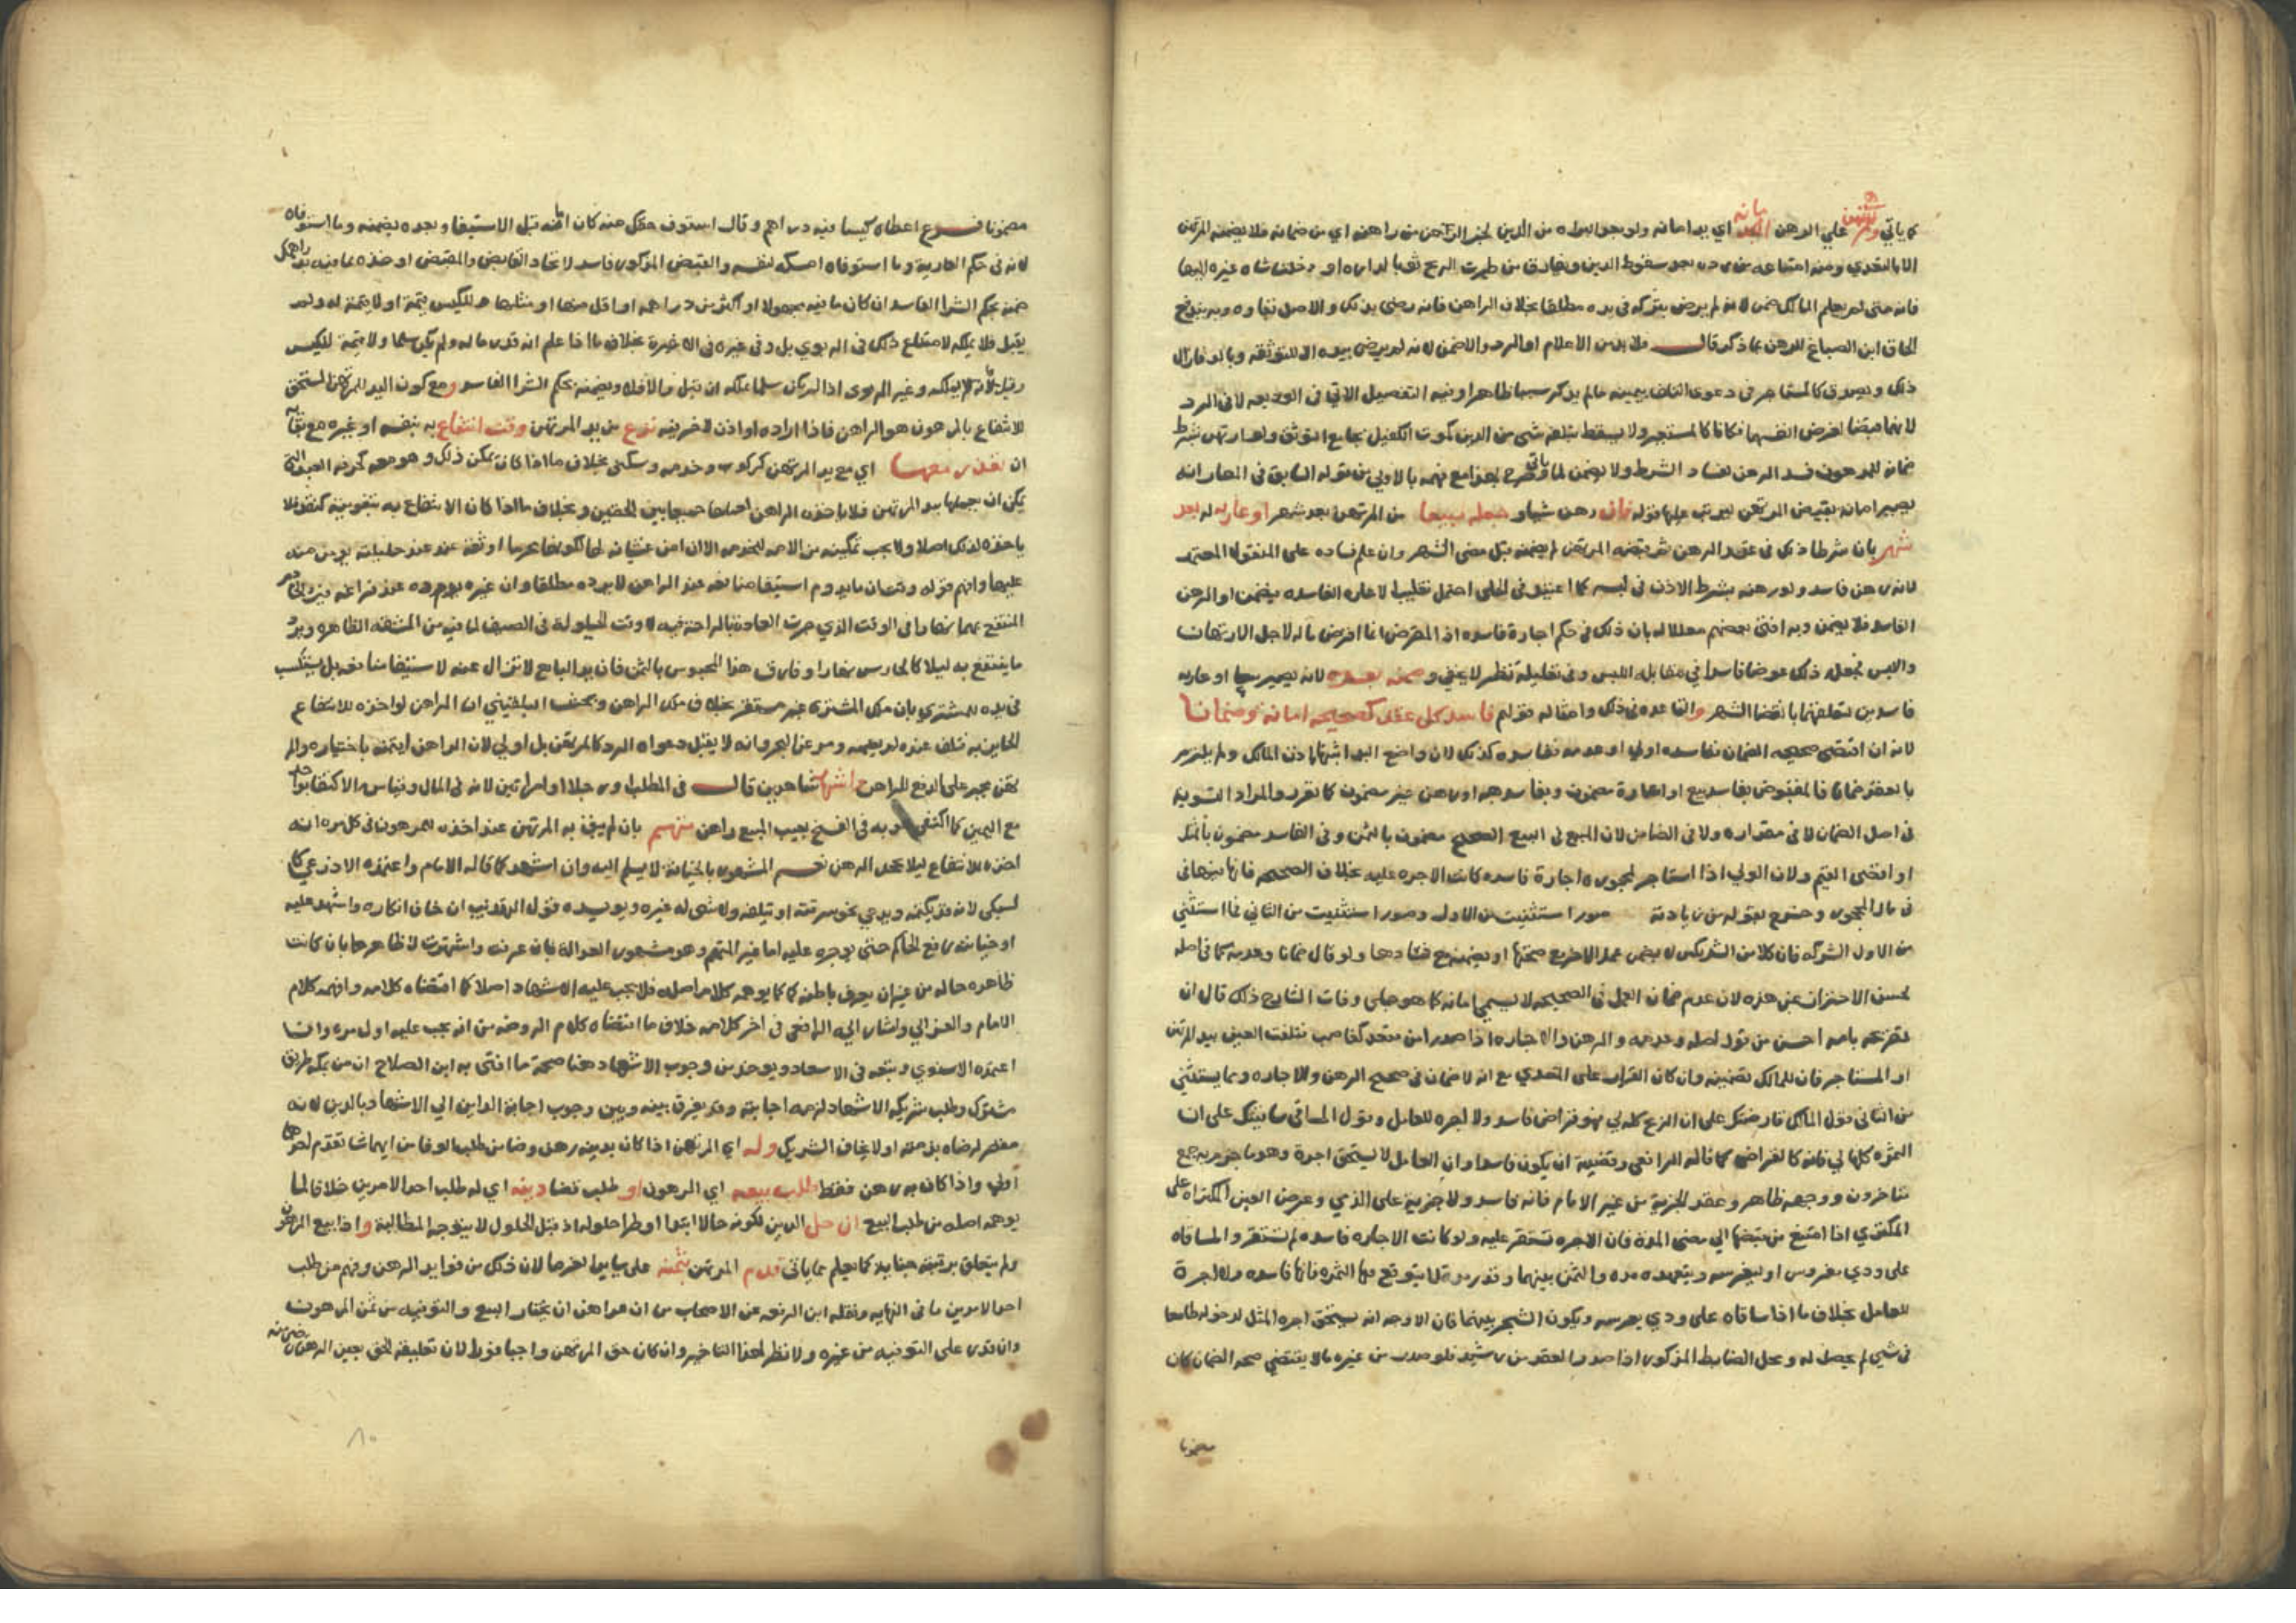 كما ياتي وللمرتهن علي الرهن اليد امانه اي يد امانه ولو بعد البراه من الدين لخبر الرهن من راهنه اي من ضمانه فلا يضمنه المرتهن
الا بالتعدي ومنه امتناعه من رده بعد سقوط الدين وفارق من طيرت الريح ثوبا لداره او دخلت شاه غيره اليها
فانه متى لم يعلم المالك ضمن لانه لم يرض بتركه في يده مطلقا بخلاف الراهن فانه رضي بذلك والاصل بقاوه وبه يندفع
الحاق ابن الصباغ للرهن بما ذكر قال فلا بد من الاعلام او الرد والا ضمن لانه لم يرض بيده الا للتوثقه وبالدين زال
ذلك ويصدق كالمستاجر في دعوى التلف بيمينه مالم يذكر سببا ظاهرا وفيه التفصيل الاتي في الوديعه لا في الرد
لانهما قبضا لغرض انفسهما فكانا كالمستجير ولا يسقط بتلفه شي من الدين كموت الكفيل بجامع التوثق ولو ارتهن بشرط
ضمانه للمرهون فسد الرهن لفساد الشرط ولا يضمن لما ياتي وصرح بهذا مع فهمه بالاولي من قوله السابق في المعار انه
يصير امانه بقبض المرتهن ليرتب عليها قوله فان رهن شياو جعله مبيعا من المرتهن بعد شهر او عاريه له بعد
شهر بان شرطا ذلك في عقد الرهن ثم قبضه المرتهن لم يضمنه قبل مضى الشهر وان علم فساده على المنقول المعتمد
لانه رهن فاسد ولو رهنه بشرط الاذن في لبسه كما اعتيد في الحلى احتمل تغليب العاره الفاسده فيضمن او الرهن
الفاسد فلا يضمن وبه افتى بعضهم معللا له بان ذلك في حكم اجارة فاسده اذ المقرض انما اقرض ماله لاجل الارتهان
واللبس فجعل ذلك عوضا فاسدا في مقابله اللبس وفي تعليله نظر لا يخفي وضمنه بعده لانه يصير بيعا او عاريه
فاسدين لتعلقهما بانقضا الشهر والقاعده في ذلك وامثاله قولهم فاسد كل عقد كصحيحه امانه وضمانا
لانه ان اقتضى صحيحه الضمان ففاسده اولي او عدمه ففاسده كذلك لان واضع اليد اثبتها باذن المالك ولم يلتزم
بالعقد ضمانا فالمقبوض بفاسد بيع او اعارة مضمون وبفاسد هبه او رهن غير مضمون كما تقرر والمراد التسويه
في اصل الضمان لا في مقداره ولا في الضامن لان المبيع في البيع الصحيح مضمون بالثمن وفي الفاسد مضمون بالمثل
او اقصى القيم ولان الولي اذا استاجر لمحجوره اجارة فاسده كانت الاجره عليه بخلاف الصحيحه فانها فيها في
في مال المحجور وخرج بقوله من زيادته صور استثنيت من الاول وصور استثنيت من الثاني فما استثني
من الاول الشركه فان كلا من الشريكين لا يضمن عمل الاخر مع صحتها او يضمنه مع فسادها ولو قال ضمانا وعدمه كما في اصله
لحسن الاحتراز عن هذه لان عدم ضمان العمل في الصحيحه لا يسمي امانه كما هو جلي وفات الشارح ذلك قال ان
تعبيره بامه احسن من قول اصله وعدمه والرهن والاجاره اذا صدرا من متعد كغاصب فتلفت العين بيد المرتهن
او المستاجر فان للمالك تضمينه وان كان القرار على المتعدي مع انه لا ضمان في صحيح الرهن والاجاره ومما يستثني
من الثاني قول المالك قارضتك على ان الربح كله لي فهو قراض فاسد ولا اجره للعامل وقول المساقي ساقيتك على ان
الثمره كلها لي فانه كالقراض كما قاله الرافعي وقضيته ان يكون فاسدا وان العامل لا يستحق اجرة وهو ما جزم به جمع
متاخرون ووجهه ظاهر وعقد الجزية من غير الامام فانه فاسد ولا جزية على الذمي وعرض العين المكتراه على
المكتري اذا امتنع من قبضها الي مضى المدة فان الاجره تستقر عليه ولو كانت الاجاره فاسده لم تستقر والمساقاه
على ودي مغروس او ليغرسه ويتعهده مده والثمن بينهما وقدر مده لا يتوقع بها الثمره فانها فاسده ولا اجرة
للعامل بخلاف ما اذا ساقاه على ودي يغرسه ويكون الشجر بينهما فان الاوجه انه يستحق اجره المثل لدخوله طامعا
في شي لم يحصل له ومحل الضابط المذكور اذا صدر العقد من رشيد فلو صدر من غيره مالا يقتضي صحه الضمان كان
مضمونا
مضمونا فـرع اعطاه كيسا فيه دراهم وقال استوف حقك منه كان امانه قبل الاستيفا وبعده يضمنه وما استوفاه
لانه في حكم العارية وما استوفاه امسكه لنفسه والقبض المذكور فاسد لاتحاد القابض والمقبض او خذه بما فيه بدراهمك
ضمنه بحكم الشرا الفاسد ان كان ما فيه مجهولا او اكثر من دراهمه او اقل منها او مثلها وللكيس قيمة او لا قيمة له ولم
يقبل فلا يملكه لامتناع ذلك في الربوي بل وفي غيره في الاخيرة بخلاف ما اذا علم انه قدر ماله ولم يكن سلما ولا قيمة للكيس
وقيل لانه لا يملكه وغير الربوى اذا لم يكن سلما يملكه ان قبل والا فلا ويضمنه بحكم الشرا الفاسد ومع كون اليد للمرتهن المستحق
للانتفاع بالمرهون هو الراهن فاذا اراده او اذن لاخر فيه نزع من يد المرتهن وقت انتفاع به بنفسه او غيره مع بقايه
ان تعذر معها اي مع يد المرتهن كركوب وخدمه وسكنى بخلاف ما اذا كان يمكن ذلك وهو معه كحرفه العبد التي
يمكن ان يعملها بيد المرتهن فلا ياخذه الراهن لعملها جمعا بين الحقين وبخلاف ما اذا كان الانتفاع به بتفويته كنقد فلا
ياخذه لذلك اصلا ولا يجب تمكينه من الامه للخدمه الا ان امن غشيانه لها لكونها محرما او ثقه عنده حليلته يومن منه
عليها وافهم قوله وقت ان ما يدوم استيفا منافعه عند الراهن لا يرده مطلقا وان غيره يرده عند فراغه فيرد الخادم
المنتفع بهما نهارا في الوقت الذي جرت العادة بالراحة فيه لا وقت القيلولة في الصيف لما فيه من المشقه الظاهره ويرد
ما ينتفع به ليلا كالحارس نهارا وفارق هذا المحبوس بالثمن فان يد البايع لا تزال عنه لاستيفا منافعه بل يكتسب
في يده للمشتري بان ملك المشتري غير مستقر بخلاف ملك الراهن وبحث البلقيني ان الراهن لو اخذه للانتفاع
الجايز به فتلف عنده لم يضمنه ومر عن البحر وانه لا يقبل دعواه الرد كالمرتهن بل اولي لان الراهن ايتمنه باختياره والمر
تهن يجبر على الدفع للراهن اشهاد شاهدين قال في المطلب ورجلا او امراتين لانه في المال وقياسه الاكتفا بواحد
مع اليمين كما اكتفي به في الفسخ بعيب المبيع راهن متهم بان لم يثق به المرتهن عند اخذه للمرهون في كل مره انه
اخذه للانتفاع ليلا يجحد الرهن نعم المشهور بالخيانة لا يسلم اليه وان اشهد كما قاله الامام واعتمده الاذرعي كا
لسبكى لانه قد يكتمه ويدعي نحو سرقته او تلفه ولا شي له غيره ويويده قول الروضه ان خان انكاره واشهد عليه
او خيانته رفع للحاكم حتى يوجره عليه اما غير المتهم وهو مشهور العدالة بان عرفه واشتهرت لا ظاهرها بان كانت
ظاهره حاله من غير ان يعرف باطنه كما يوهمه كلام اصله فلا يجب عليه الاشهاد اصلا كما اقتضاه كلامه وافهمه كلام
الامام والغزالي واشار اليه الرافعي في اخر كلامه خلاف ما اقتضاه كلام الروضه من انه يجب عليه اول مره وان
اعتمده الاسنوي وتبعه في الاسعاد ويوخذ من وجوب الاشهاد هنا صحة ما افتى به ابن الصلاح ان من بيده طريق
مشترك وطلب شريكه الاشهاد لزمه اجابته وقد يفرق بينه وبين وجوب اجابة الداين الي الاشهاد بالدين لانه
مقصر لرضاه بذمته او لا بخلاف الشريك وله اي المرتهن اذا كان بدينه رهن وضامن طلب الوفا من ايهما شا تقدم احدهما
اولي واذا كان به رهن فقط طلب بيعه اي المرهون او طلب قضا دينه اي له طلب احد الامرين خلافا لما
يوهمه اصله من طلب البيع ان حل الدين لكونه حالا ابتدا او طرا حلوله اذ قبل الحلول لا يتوجه المطالبة واذا بيع المرهون
ولم يتعلق برقبته جنايه كما يعلم مما ياتي قدم المرتهن بثمنه على ساير الغرما لان ذلك من فوايد الرهن وفهم من طلب
احد الامرين ما في النهايه ونقله ابن الرفعه عن الاصحاب من ان للراهن ان يختار البيع والتوفيه من ثمن المرهون
وان قدر على التوفيه من غيره ولا نظر لهذا التاخير وان كان حق المرتهن واجبا فورا لان تعليقه الحق بعين الرهن رضى منه
٨٠